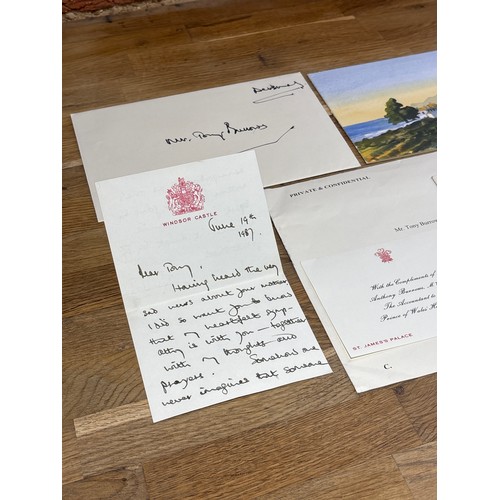 Mr. Tony Burrows
WINDSOR CASTLE
June 19th
1987.
Dear Tony,
Having heard the very
sad news about your mother,
I did so want you to know
that my heartfelt symp-
athy is with you - together
with my thoughts and
prayers. Somehow one
never imagines that someone
PRIVATE & CONFIDENTIAL
Mr. Tony Burrow
With the Compliments of
Anthony Burrows, M.V
The Accountant to
Prince of Wales H
ST. JAMES'S PALACE
C.